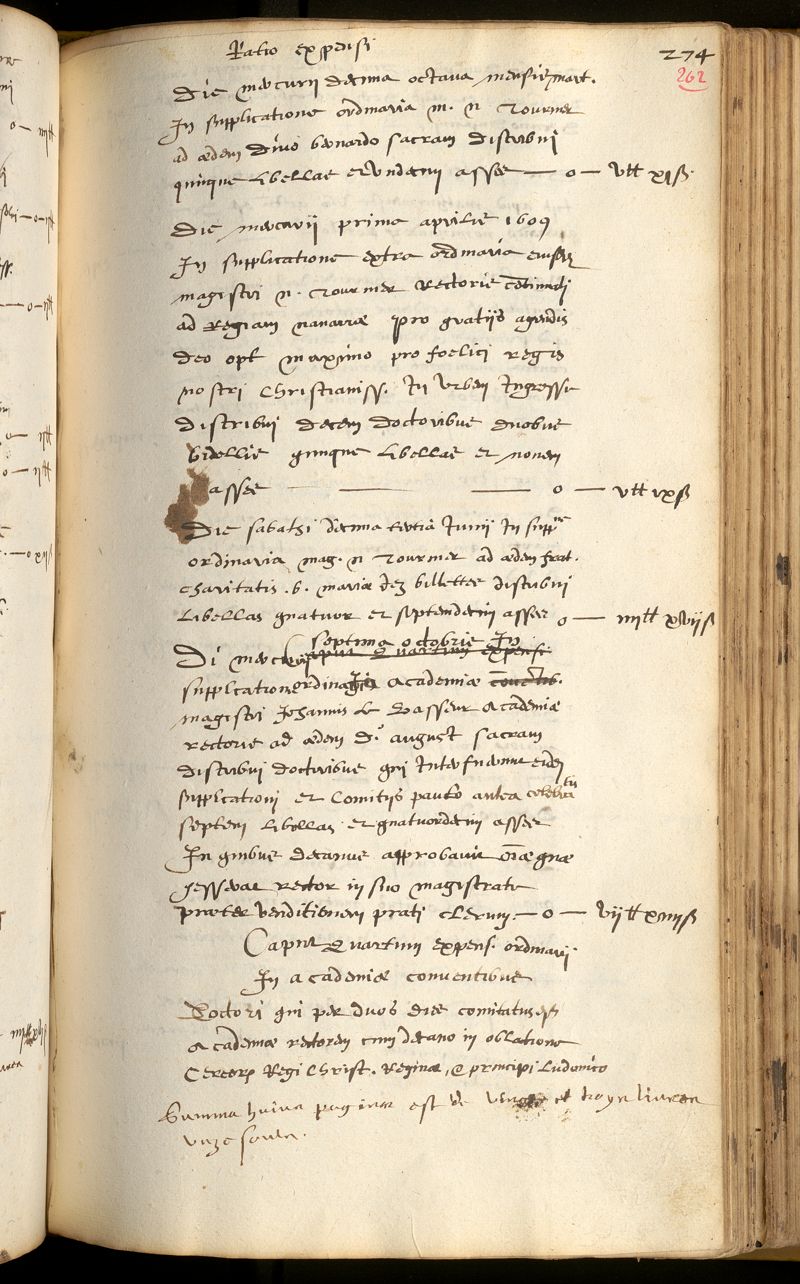 Ratio expensi
274
262
Die mercurii decima octava mensis mart.
In supplicatione ordinaria m. n. Tourner
ad ædem divo bernardo sacram distribui
quinque libellas et undecim asses — o — v tt xi ß.
Die mercurii prima aprilis 1609
In supplicatione extra ordinaria eiusdem
magistri n. Tourner Rectoris
ad Regiam navarræ pro gratiis agendis
deo opt maximo pro foelici regis
nostri Christianiss. In Urbem Ingressu
distribui decem doctoribus duobus
bidellis quinque libellas et novem
asses — — o — v tt ix ß
Die sabathi decima tertia Junii In supp
ordinaria mag. n Tourner ad ædem frat.
charitatis b. mariæ billettes distribui
libellas quatuor et septendecim asses o — iiii tt xvii ß
septima octobris In
Di mercurii caput Quartum expensi
supplicatione ordinaria Academiæ
magistri Johannis le Vasseur Academiæ
rectoris ad ædem D. august sacram
distribui doctoribus qui Interfuerunt eidem
supplicationi et Comitiis paulo antea celebratis
septem libellas et quatuordecim asses
In quibus decanus approbavit quæ
gesserat rector in suo magistratu
præter venditionem prati clerum. — o — vii tt xiiii ß
Caput Quartum expens. ordinarii
In academiæ conventibus
Doctori qui per duos dies comitatus est
Academiæ rectorem cum decano in oblatione
Cereorum Regi Christ. Reginæ, & principi Ludovico
Summa huius paginæ est de vingt et troys livres
unze soulz.